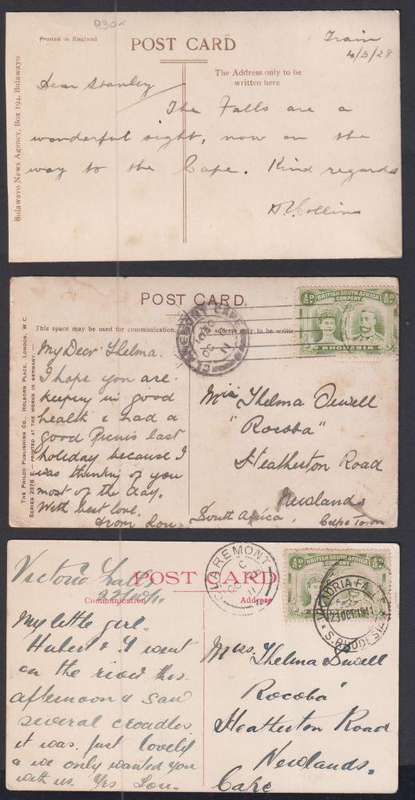 POST CARD
Printed in England
Train
4/3/28
The Address only to be
written here
Bulawayo News Agency, Box 194, Bulawayo
Dear Stanley
The Falls are a
wonderful sight, now on the
way to the Cape. Kind regards
Collins
POST CARD.
This space may be used for communication.
THE PHILCO PUBLISHING CO., HOLBORN PLACE, LONDON, W.C.
SERIES PRINTED AT THE WORKS IN GERMANY
BRITISH SOUTH AFRICA
COMPANY
RHODESIA
½D
My Dear Thelma.
I hope you are
keeping in good
health & had a
good Picnic last
holiday because I
was thinking of you
most of the day.
With best love.
from Lou.
Miss Thelma Sewell
"Rocoba"
Heatherton Road
Newlands
South Africa, Cape Town
POST CARD
Communication
Address
Victoria Falls
My little girl.
Hubert & I went
on the river this
afternoon & saw
several crocodiles
it was just lovely
& we only wanted you
with us. Yrs Lou.
Miss Thelma Sewell
Rocoba
Heatherton Road
Newlands.
Cape
CLAREMONT
VICTORIA FALLS
23 OCT 1911
S. RHODESIA